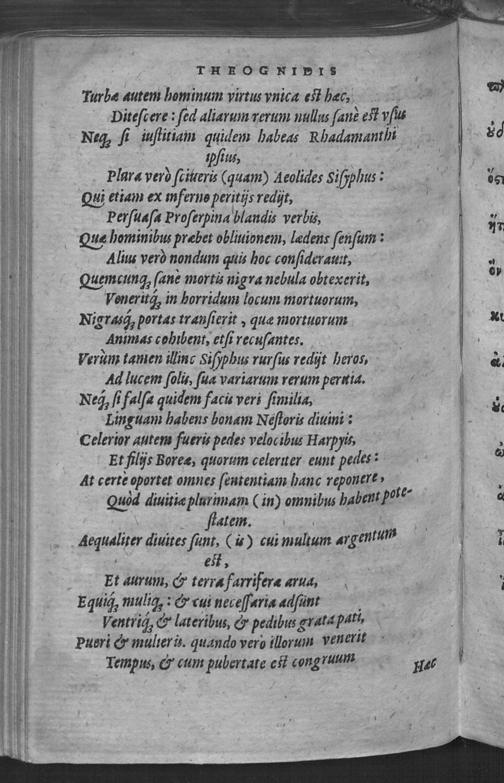 THEOGNIDIS
Turbæ autem hominum virtus vnica est hæc,
Ditescere: sed aliarum rerum nullus sanè est vsus
Neq; si iustitiam quidem habeas Rhadamanthi
ipsius,
Plura verò sciueris (quam) Aeolides Sisyphus:
Qui etiam ex inferno peritijs redijt,
Persuasa Proserpina blandis verbis,
Quæ hominibus præbet obliuionem, lædens sensum:
Alius verò nondum quis hoc considerauit,
Quemcunq; sanè mortis nigra nebula obtexerit,
Veneritq́; in horridum locum mortuorum,
Nigrasq́; portas transierit, quæ mortuorum
Animas cohibent, etsi recusantes.
Verùm tamen illinc Sisyphus rursus redijt heros,
Ad lucem solis, sua variarum rerum peritia.
Neq́; si falsa quidem facis veri similia,
Linguam habens bonam Nestoris diuini:
Celerior autem fueris pedes velocibus Harpyis,
Et filijs Boreæ, quorum celeriter eunt pedes:
At certè oportet omnes sententiam hanc reponere,
Quòd diuitiæ plurimam (in) omnibus habent pote-
statem.
Aequaliter diuites sunt, (is) cui multum argentum
est,
Et aurum, & terræ farriferæ arua,
Equiq́; muliq;: & cui necessaria adsunt
Ventriq́;, & lateribus, & pedibus grata pati,
Pueri & mulieris. quando verò illorum venerit
Tempus, & cum pubertate est congruum
Hæc